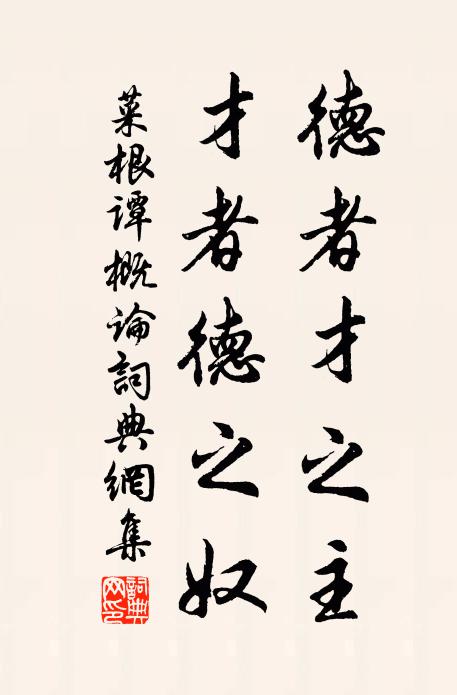 德者才之主
才者德之奴
菜根谭概論詞典網集
詞典网印